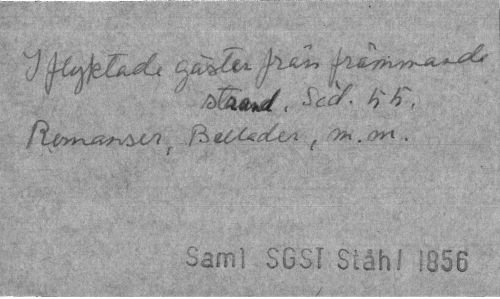 I flyktade gäster från främmande
strand. Sid. 55.
Romanser, Ballader, m.m.
Saml SGST Ståhl 1856